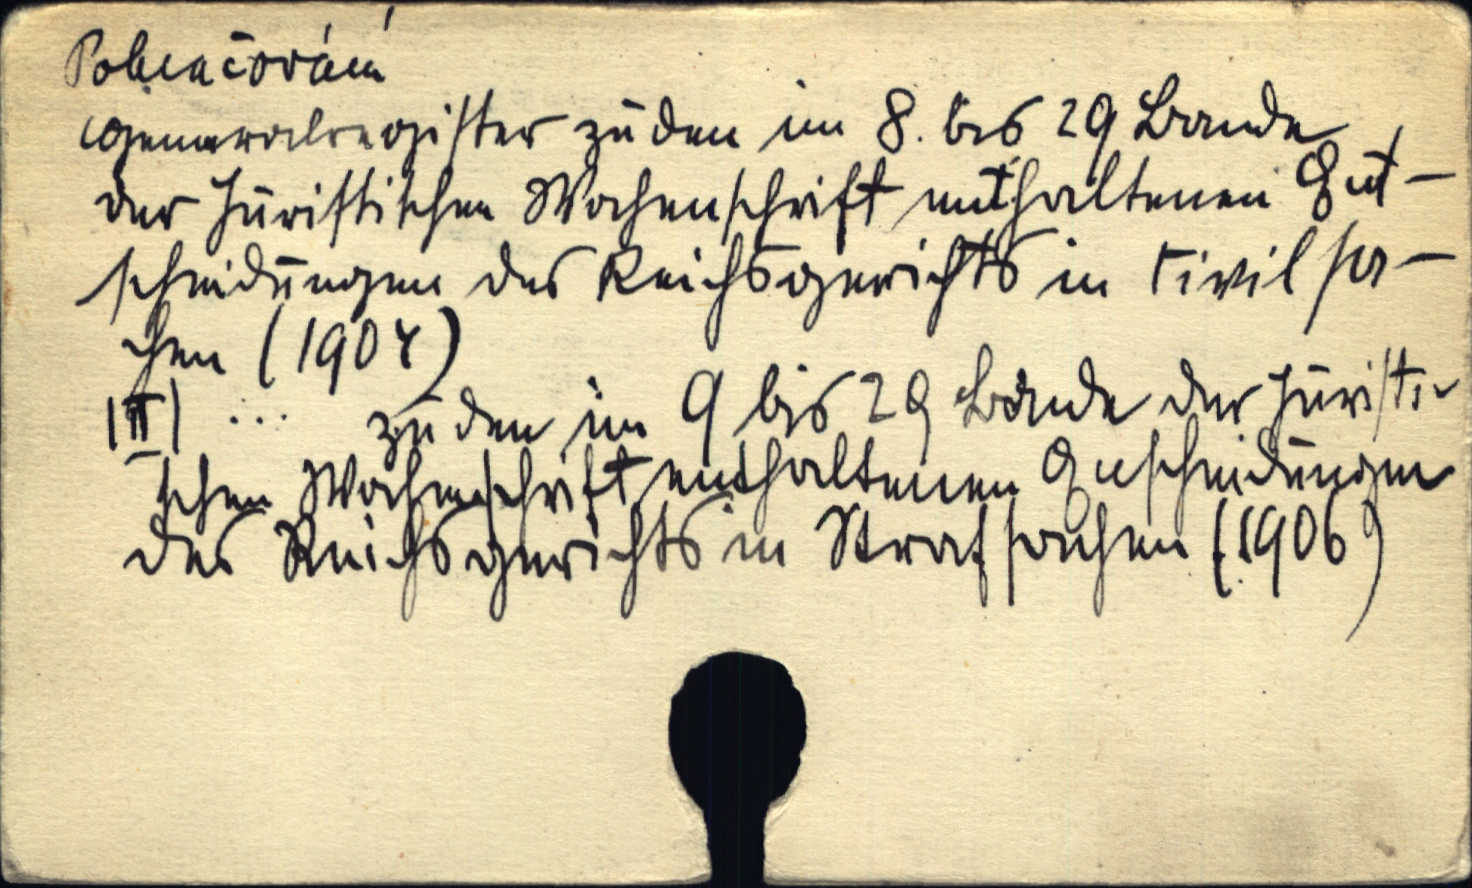 Pokračování
Generalregister zu den im 8. bis 29 Bande
der Juristischen Wochenschrift enthaltenen Ent-
scheidungen des Reichsgerichts in Civilsa-
chen (1904)
|II| ... zu den im 9 bis 29 Bande der Juristi-
schen Wochenschrift enthaltenen Entscheidungen
des Reichsgerichts in Strafsachen (1906)